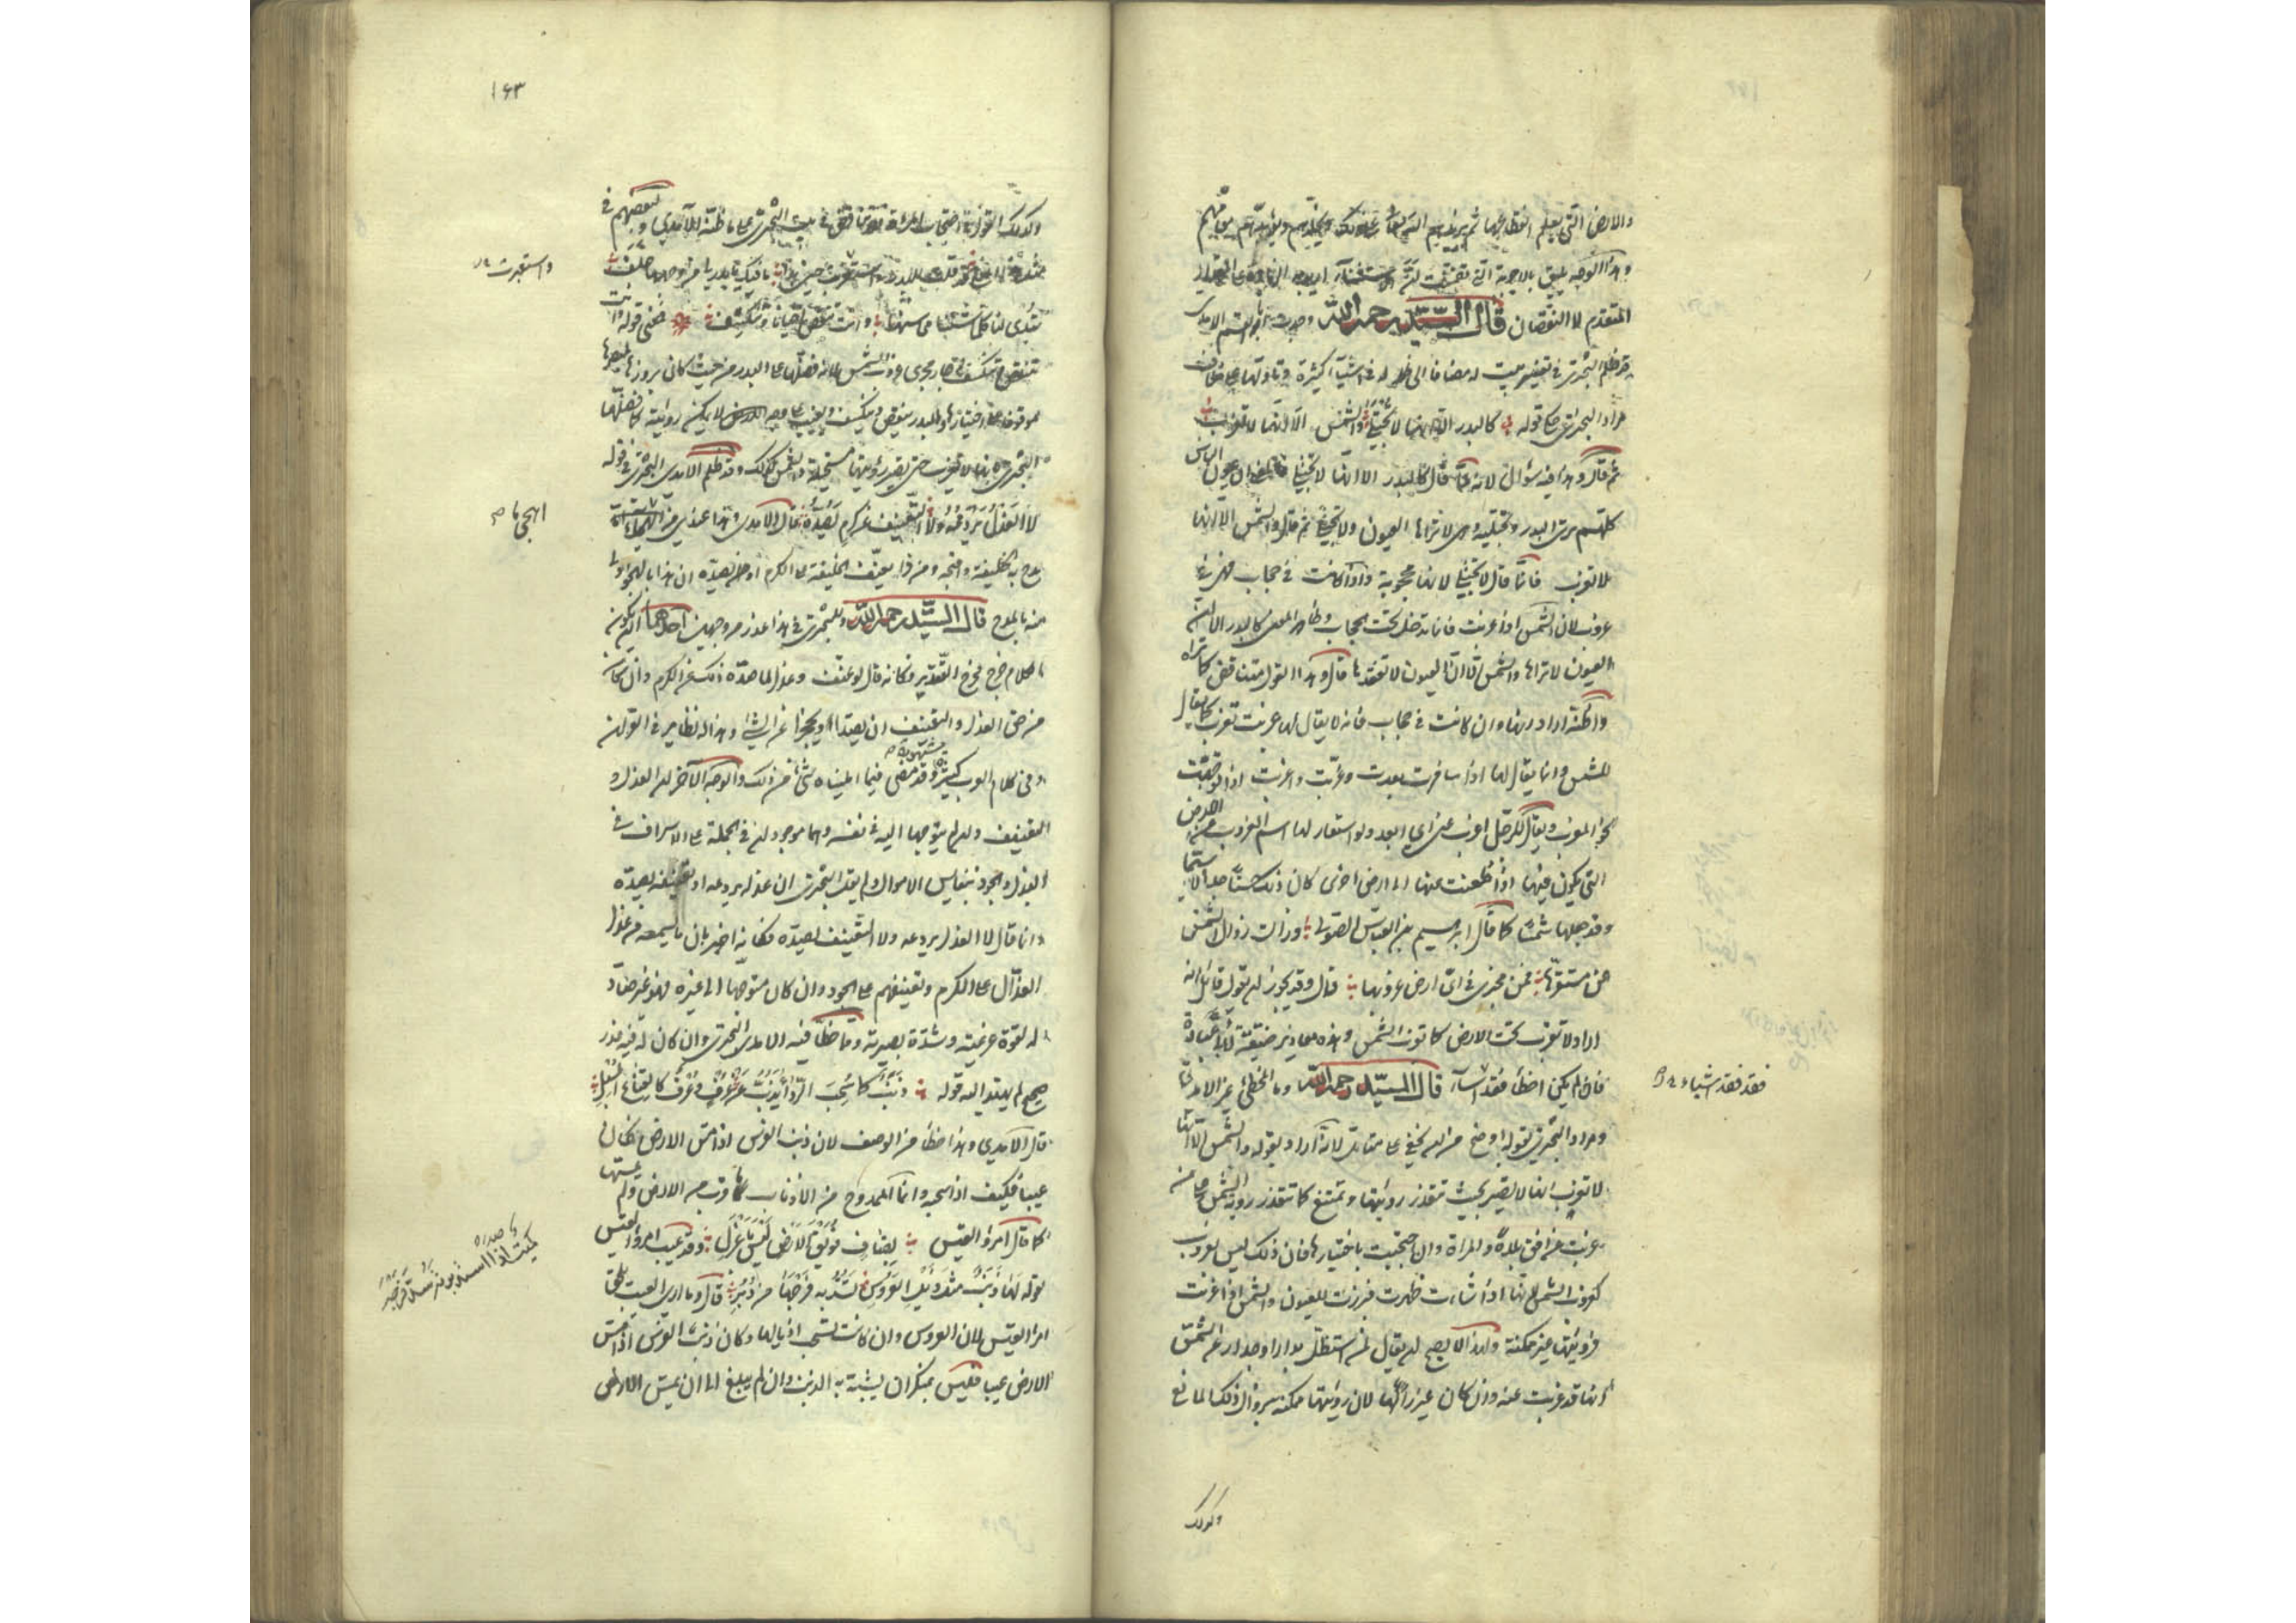 والارض التي يعلم انقطاعهما ثم يزيدهم الله تعالى على ذلك ويخلدهم ويؤيد مقامهم
وهذا الوجه يليق بالاجوبة التي تضمنت
المتقدم لا النقصان قال السيد رحمه الله وجدت ابا القسم الامدي
قد ظلم البحتري في تفسير بيت له مضافا الى ظلمه له في اشياء كثيرة وتاولها على خلاف
مراد البحتري حكى قوله كالبدر الا انها لا تجتلى والشمس الا انها لا تغرب
ثم قال وهذا فيه سؤال لانه لما قال كالبدر الا انها لا تجتلى فالمعنى ان عيون الناس
كلهم ترى البدر وتجتليه وهي لا تراها العيون ولا تجتلى ثم قال والشمس الا انها
لا تغرب فانما قال لا تجتلى لانها محجوبة واذا كانت في حجاب فهي في
غروب لان الشمس اذا غربت فانما تدخل تحت الحجاب وظاهر المعنى كالبدر الا ان
العيون لا تراها والشمس الا ان العيون لا تفقدها قال وهذا القول متناقض كما تراه
واظنه اراد انها وان كانت في حجاب فانه لا يقال لها غربت تغرب كما يقال
للشمس وانما يقال لها اذا سافرت بعدت وغربت واغربت اذا توجهت
نحو المغرب ويقال للرجل اغرب عني اي ابعد ولو استعار لها اسم الغروب عن الارض
التي يكون فيها اذا ظعنت عنها الى ارض اخرى كان ذلك حسنا جدا لا سيما
وقد جعلها شمسا كما قال ابرهيم بن العباس الصولي وزالت زوال الشمس
عن مستقرها فمن مخبري في اي ارض غروبها قال وقد يجوز ان يقول قائل انه
اراد لا تغرب تحت الارض كما تغرب الشمس وهذه معاذير ضيقة لابي عبادة
فان لم يكن اخطأ فقد اساء قال السيد رحمه الله وما المخطئ غير الامدي
ومراد البحتري بقوله اوضح من ان يخفى على متامل لانه اراد بقوله والشمس الا انها
لا تغرب انها لا تصير بحيث تتعذر رؤيتها وتمتنع كما تتعذر رؤية الشمس على من
غربت عن افق بلده والمراة وان احتجبت باختيارها فان ذلك ليس بغروب
كغروب الشمس لانها اذا شاءت ظهرت فبرزت للعيون والشمس اذا غربت
فرؤيتها غير ممكنة ولهذا لا يصح ان يقال لمن استظل بدار او جدار عن الشمس
انها قد غربت عنه وان كان غير رائيها لان رؤيتها ممكنة بزوال ذلك المانع
فقد فقد اشياء
وكذلك
١٤٣
وكذلك القول في احتجاب المراة فلا تناقض في بيت البحتري على ما ظنه الامدي ولبعضهم في
قد قلت للبدر واستعبرت حين بدا ما فيك يا بدر لي من وجهها خلف
تبدي لنا كلما شئنا محاسنها وانت تنقص احيانا وتنكسف فمعنى قوله وانت
تنقص وتنكسف في صار مجرى غروب الشمس لانه فضلها على البدر من حيث كان بروزها لمبصرها
موقوفا على اختيارها والبدر ينقص وينكسف ويغيب على وجه لا يمكن رؤيته كما فضلها
البحتري بانها لا تغرب حتى تصير رؤيتها مستحيلة والشمس كذلك وقد ظلم الامدي البحتري في قوله
لا العذل يردعه ولا التعنيف عن كرم يصده قال الامدي وهذا عندي من اهجى ما
مدح به خليفة واقبحه ومن ذا يعنف الخليفة على الكرم او يصده ان هذا بالهجو اولى
منه بالمدح قال السيد رحمه الله وللبحتري في هذا عذر من وجهين احدهما ان يكون
الكلام خرج مخرج التقدير فكانه قال لو عنف وعذل لما صده ذلك عن الكرم وان كان
من حق العذل والتعنيف ان يصدا ويحجزا عن الشئ وهذا له نظاير في القران
وفي كلام العرب كثيرة مشهورة وقد مضى فيما امليناه شئ من ذلك والوجه الاخر ان العذل و
التعنيف وان لم يتوجها اليه في نفسه فهما موجودان في الجملة على الاسراف في
البذل والجود بنفايس الاموال ولم يقل البحتري ان عذله يردعه او تعنيفه يصده
وانما قال لا العذل يردعه ولا التعنيف يصده فكانه اخبر بان ما يسمعه من عذل
العذال على الكرم وتعنيفهم على الجود وان كان متوجها الى غيره فهو غير صاد
له لقوة عزيمته وشدة بصيرته ومما خطأ فيه الامدي البحتري وان كان له فيه عذر
صحيح لم يهتد اليه قوله ذنب كما سحب الرداء يذب عن عرف وعرف كالقناع المسبل
قال الامدي وهذا خطأ من الوصف لان ذنب الفرس اذا مس الارض كان
عيبا فكيف اذا سحبه وانما الممدوح من الاذناب ما قرب من الارض ولم يمسها
كما قال امرؤ القيس بضاف فويق الارض ليس باعزل وقد عيب امرؤ القيس
بقوله لها ذنب مثل ذيل العروس تسد به فرجها من دبر قال وما ارى العيب يلحق
امرأ القيس لان العروس وان كانت تسحب اذيالها وكان ذنب الفرس اذا مس
الارض عيبا فليس بمنكر ان يشبه به الذنب وان لم يبلغ الى ان يمس الارض
واستعبرت
اهجى ما
صدره
كميت اذا استدبرته سد فرجه